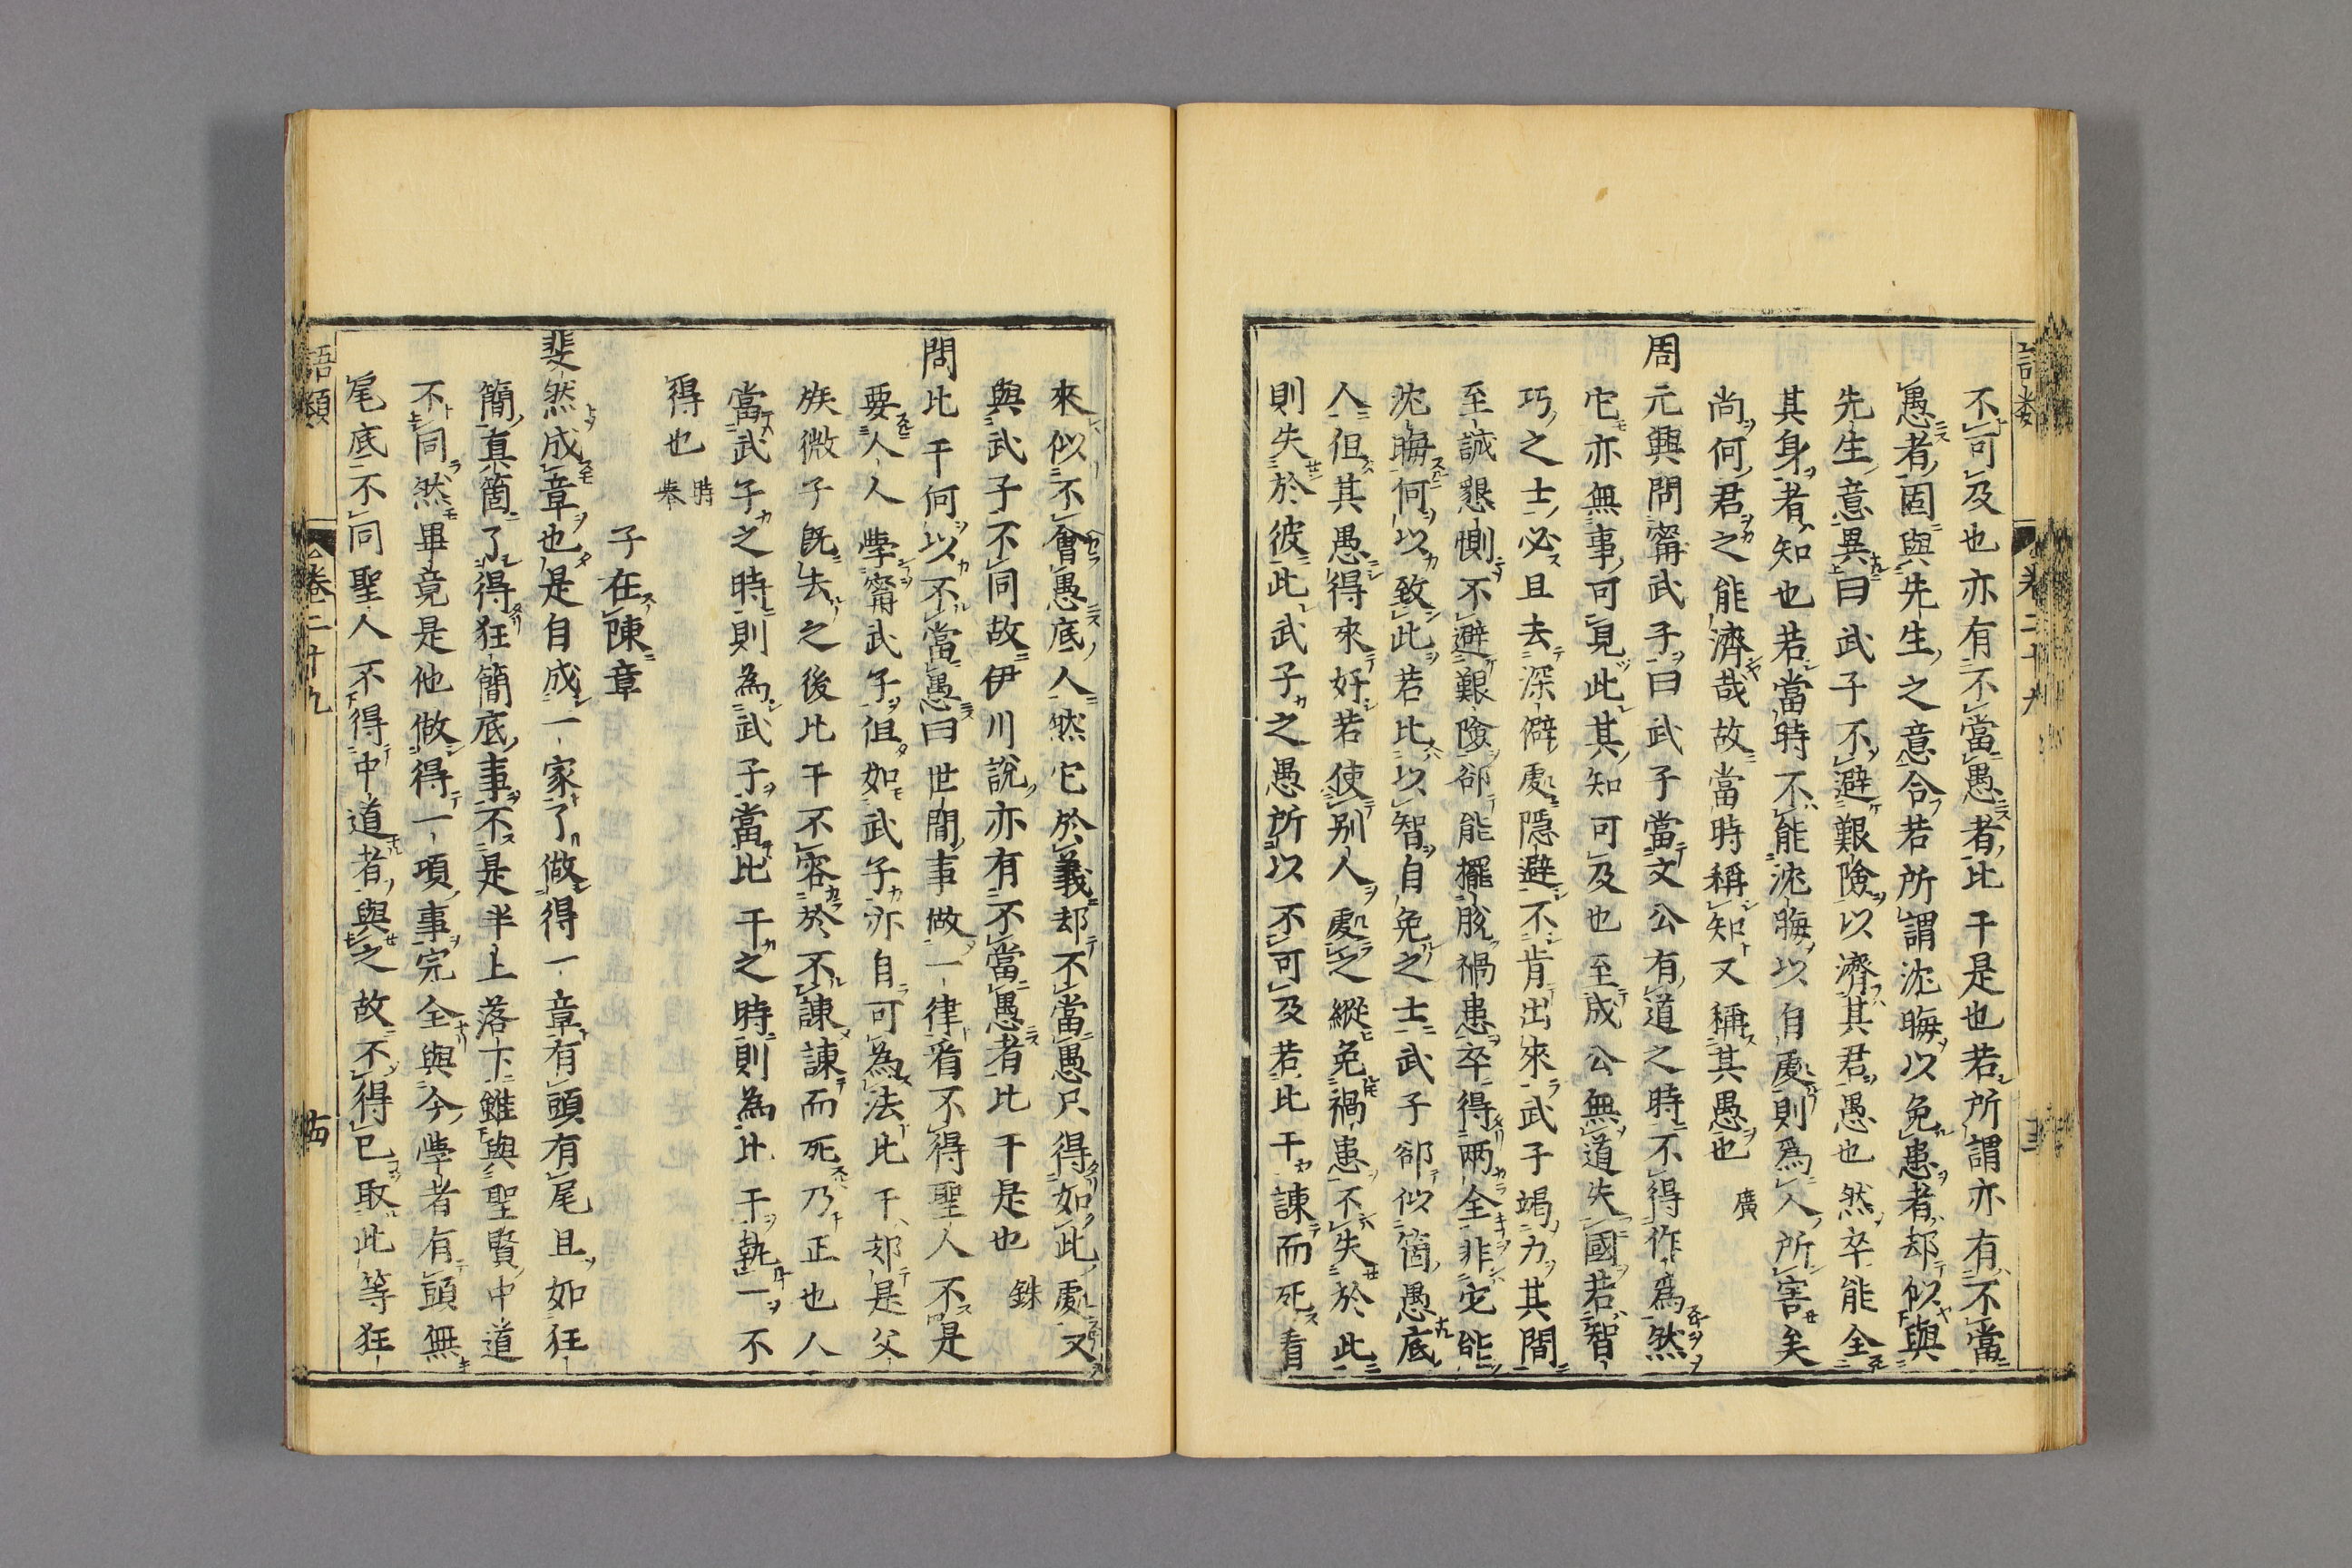 不可及也亦有不當愚者比干是也若所謂亦有不當
愚者固與先生之意合若所謂沈晦以免患者却似與
先生意異曰武子不避艱險以濟其君愚也然卒能全
其身者知也若當時不能沈晦以自處則爲人所害矣
尚何君之能濟哉故當時稱知又稱其愚也廣
周元興問甯武子曰武子當文公有道之時不得作爲然
它亦無事可見此其知可及也至成公無道失國若智
巧之士必且去深僻處隱避不肯出來武子竭力其間
至誠懇惻不避艱險却能擺脫禍患卒得兩全非它能
沈晦何以致此若比以智自免之士武子却似箇愚底
人但其愚得來好若使別人處之縱免禍患不失於此
則失於彼此武子之愚所以不可及若比干諫而死看
來似不會愚底人然它於義却不當愚只得如此處又
與武子不同故伊川說亦有不當愚者比干是也銖
問比干何以不當愚曰世間事做一律看不得聖人不是
要人人學甯武子但如武子亦自可為法比干却是父
族微子既去之後比干不容於不諫諫而死乃正也人
當武子之時則為武子當比干之時則為比干執一不
得也時舉
子在陳章
斐然成章也是自成一家了做得一章有頭有尾且如狂
簡真箇了得狂簡底事不是半上落下雖與聖賢中道
不同然畢竟是他做得一項事完全與今學者有頭無
尾底不同聖人不得中道者與之故不得已取此等狂
語類
卷二十九
十四